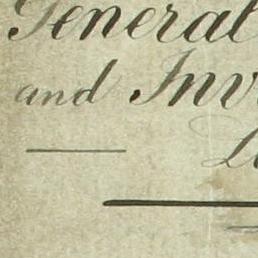 General
and Inv